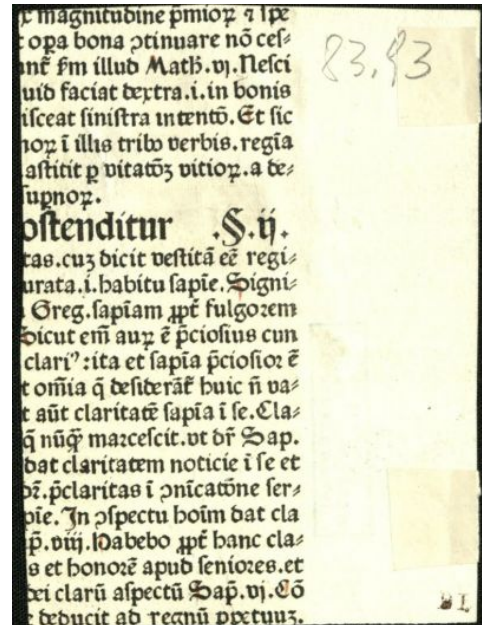 magnitudine p̄mioꝝ ⁊ spe
opa bona ꝯtinuare nō ces⸗
ant᷑ ẜm illud Math̄. vj. Nesci
uid faciat dextra .i. in bonis
isceat sinistra intentō. Et sic
noꝝ ī illis tribꝰ verbis. regīa
astitit ꝑ vitatōꝫ vitioꝝ. a de⸗
supnoꝝ.
ostenditur .§. ij.
tas. cuꝫ dicit vestitā eē regi⸗
urata .i. habitu sapīe. Signi⸗
Greg. sapīam ꝓpt̄ fulgorem
Sicut em̄ auꝝ ē p̄ciosius cun
clariꝰ : ita et sapīa p̄ciosior ē
t om̄ia q̄ desiderāt᷑ huic n̄ va⸗
t aūt claritatē sapīa ī se. Cla⸗
q̄ nūq̄ꝫ marcescit. vt dr̄ Sap.
dat claritatem noticie ī se et
or̄. p̄claritas ī ꝯnicatōne ser⸗
pīe. In ꝯspectu hoīm dat cla
p̄. viij. Habebo ꝓpt̄ hanc cla⸗
s et honorē apud seniores. et
dei clarū aspectū Sap̄. vj. Cō
deducit ad regnū ꝑpetuuꝫ.
83.93
BL